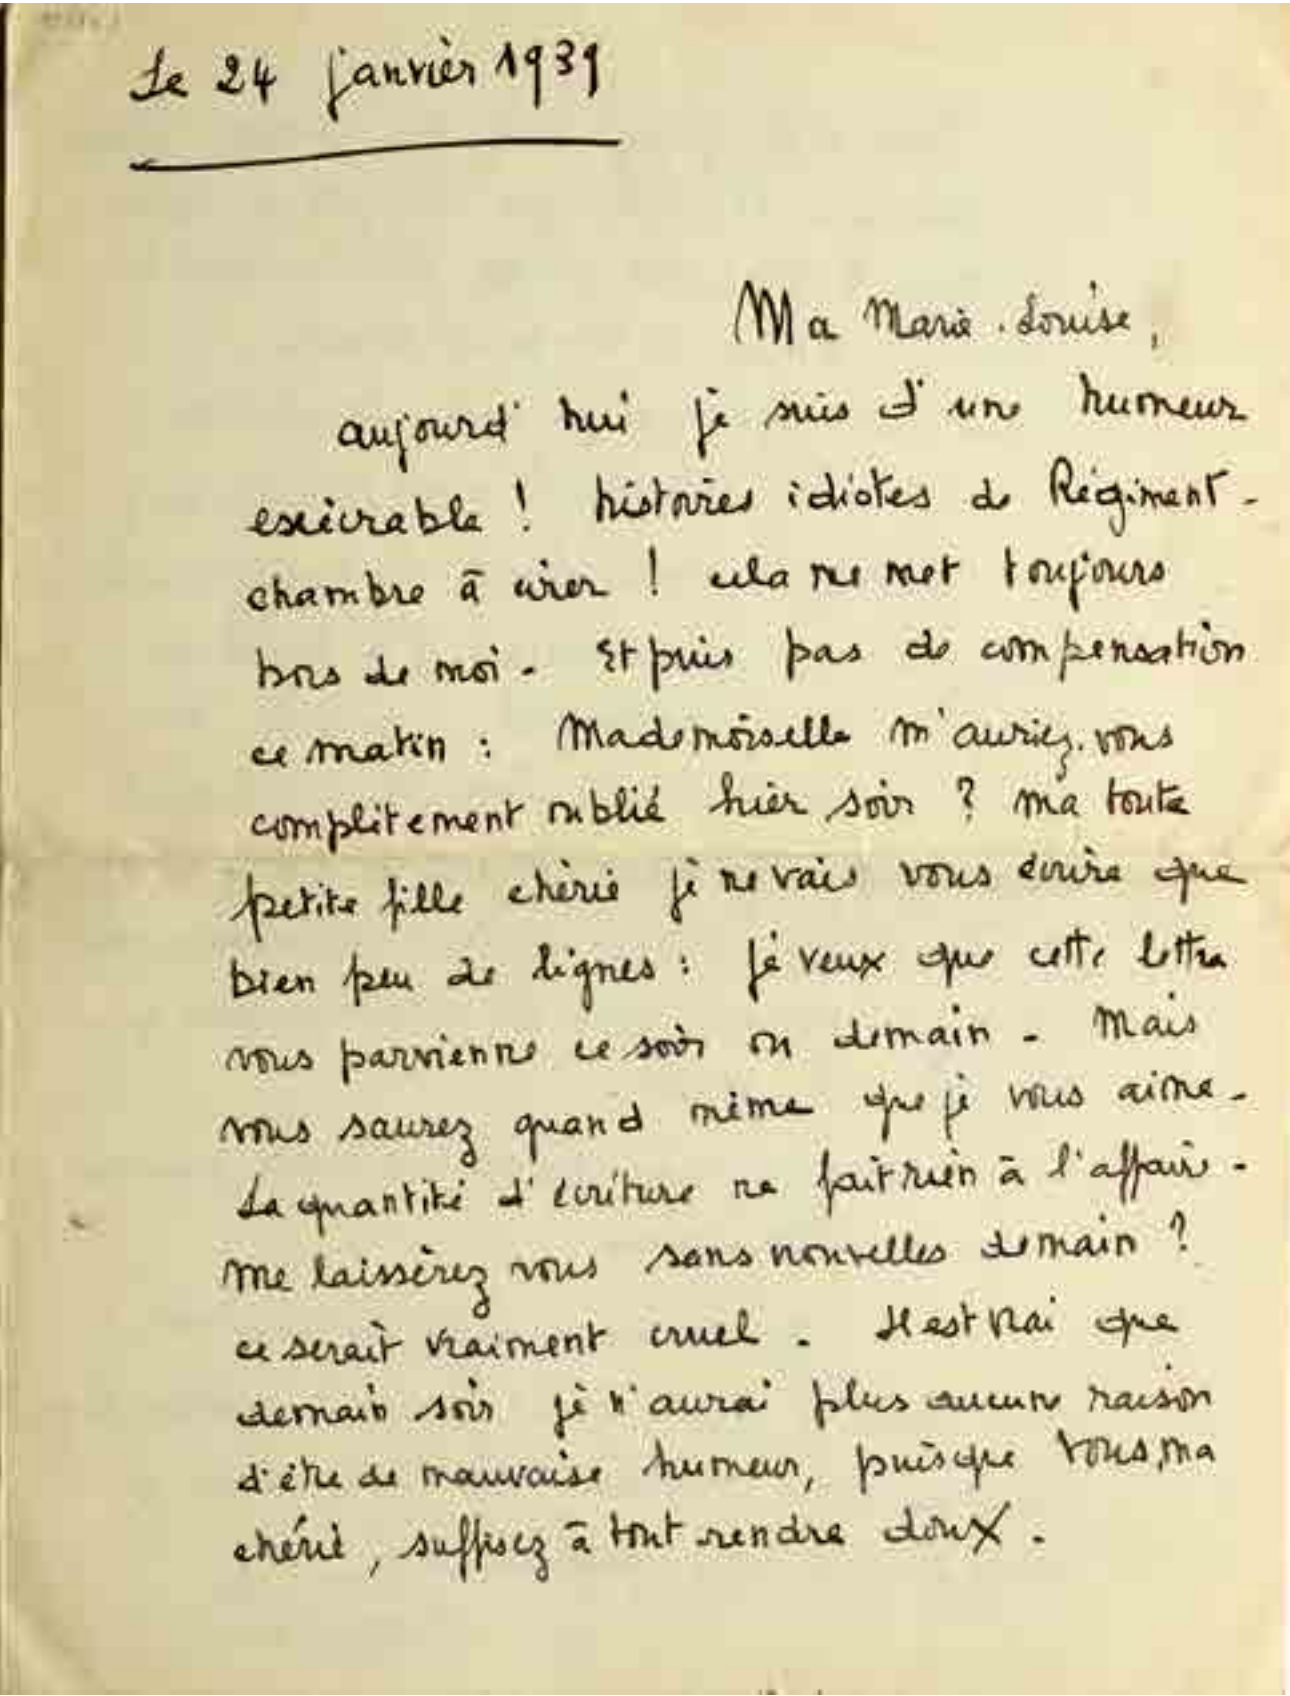 Le 24 janvier 1939
Ma Marie-Louise,
aujourd'hui je suis d'une humeur
exécrable ! histoires idiotes de Régiment -
chambre à cirer ! cela me met toujours
hors de moi - Et puis pas de compensation
ce matin : Mademoiselle m'auriez-vous
complètement oublié hier soir ? ma toute
petite fille chérie je ne vais vous écrire que
bien peu de lignes : je veux que cette lettre
vous parvienne ce soir ou demain - Mais
vous saurez quand même que je vous aime -
La quantité d'écriture ne fait rien à l'affaire -
Me laisserez vous sans nouvelles demain ?
ce serait vraiment cruel . Il est vrai que
demain soir je n'aurai plus aucune raison
d'être de mauvaise humeur, puisque vous, ma
chérie, suffisez à tout rendre doux .